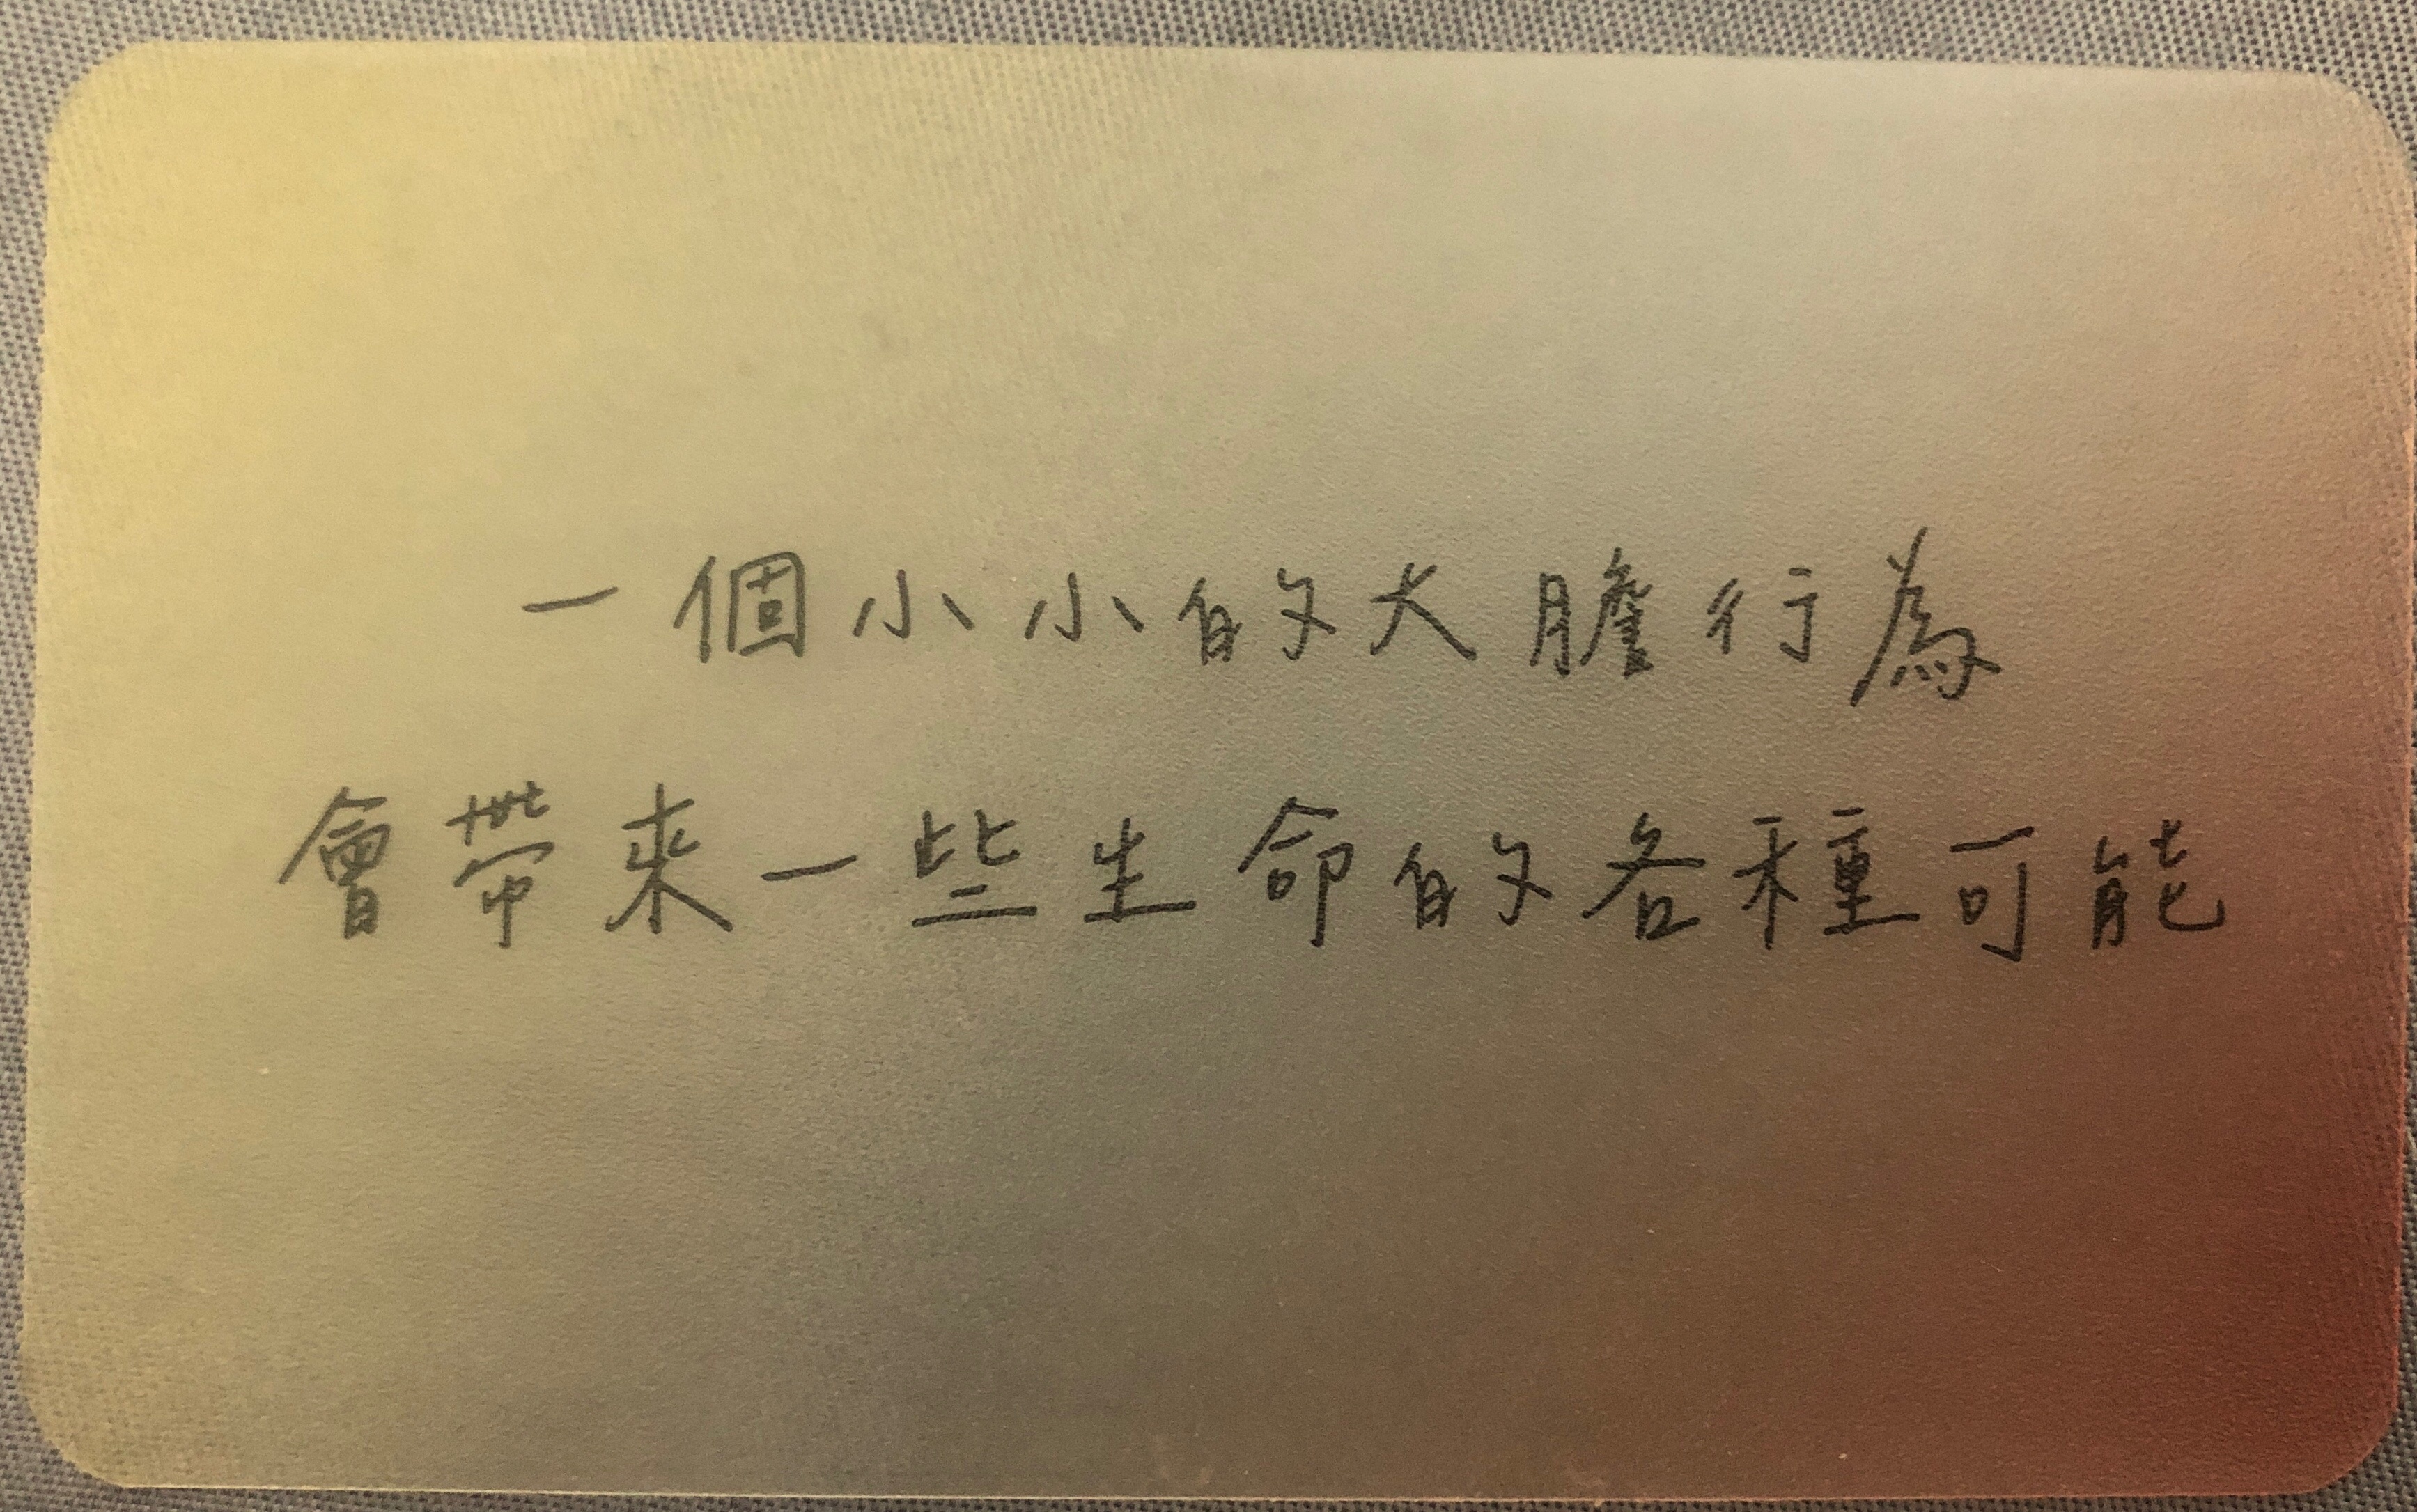 一個小小的大膽行為
會帶來一些生命的各種可能